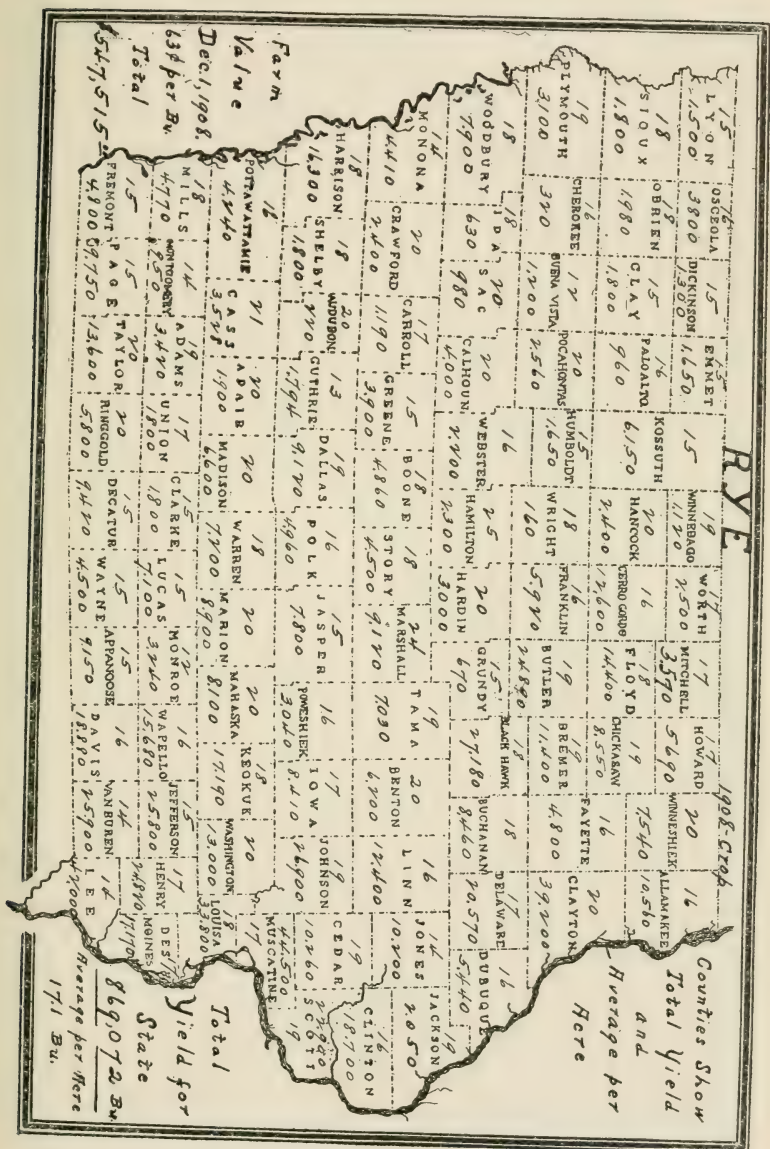 RYE
1908 - Crop
Counties Show
Total Yield
and
Average per
Acre
15
LYON
1,500
16
OSCEOLA
3800
15
DICKINSON
1,300
EMMET
1,650
15
KOSSUTH
6,150
19
WINNEBAGO
1,120
17
WORTH
2,500
17
MITCHELL
3,570
17
HOWARD
5,690
20
WINNESHIEK
7,540
16
ALLAMAKEE
10,560
18
SIOUX
1,800
18
OBRIEN
1,980
15
CLAY
1,800
16
PALOALTO
960
20
HANCOCK
2,400
16
CERRO GORDO
12,600
18
FLOYD
14,400
19
CHICKASAW
8,550
19
PLYMOUTH
3,100
16
CHEROKEE
320
12
BUENA VISTA
1,200
20
POCAHONTAS
2,560
15
HUMBOLDT
1,650
18
WRIGHT
160
16
FRANKLIN
5,920
19
BUTLER
24,890
19
BREMER
11,400
16
FAYETTE
4,800
20
CLAYTON
39,200
18
WOODBURY
7,900
18
IDA
630
20
SAC
980
20
CALHOUN
4,000
16
WEBSTER
2,200
25
HAMILTON
2,300
20
HARDIN
3,000
15
GRUNDY
670
18
BLACK HAWK
27,180
18
BUCHANAN
8,460
17
DELAWARE
20,570
16
DUBUQUE
5,440
14
MONONA
4,410
20
CRAWFORD
2,400
17
CARROLL
1,190
15
GREENE
3,900
18
BOONE
4,860
18
STORY
4,500
24
MARSHALL
9,120
19
TAMA
7,030
20
BENTON
6,200
16
LINN
12,400
14
JONES
10,200
19
JACKSON
2,050
18
HARRISON
16,300
18
SHELBY
1,800
20
AUDUBON
220
13
GUTHRIE
1,794
19
DALLAS
9,120
16
POLK
4,960
15
JASPER
7,800
16
POWESHIEK
3,040
17
IOWA
8,410
19
JOHNSON
26,900
19
CEDAR
10,260
16
CLINTON
18,700
19
SCOTT
17
MUSCATINE
44,500
16
POTTAWATTAMIE
4,240
21
CASS
3,528
20
ADAIR
1,900
20
MADISON
6,600
18
WARREN
7,200
20
MARION
8,900
20
MAHASKA
8,100
18
KEOKUK
17,190
20
WASHINGTON
13,000
18
LOUISA
33,800
18
MILLS
4,770
14
MONTGOMERY
19
ADAMS
3,420
17
UNION
1,800
15
CLARKE
1,800
15
LUCAS
7,100
12
MONROE
3,240
16
WAPELLO
15,680
15
JEFFERSON
25,800
17
HENRY
DES
MOINES
17,170
15
FREMONT
4,800
15
PAGE
9,750
20
TAYLOR
13,600
20
RINGGOLD
5,800
15
DECATUR
9,420
15
WAYNE
4,500
15
APPANOOSE
9,150
16
DAVIS
18,880
14
VAN BUREN
25,900
14
LEE
42,000
Farm
Value
Dec. 1, 1908,
63¢ per Bu.
Total
$547,515
Total
Yield for
State
869,072 Bu.
Average per Acre
17.1 Bu.